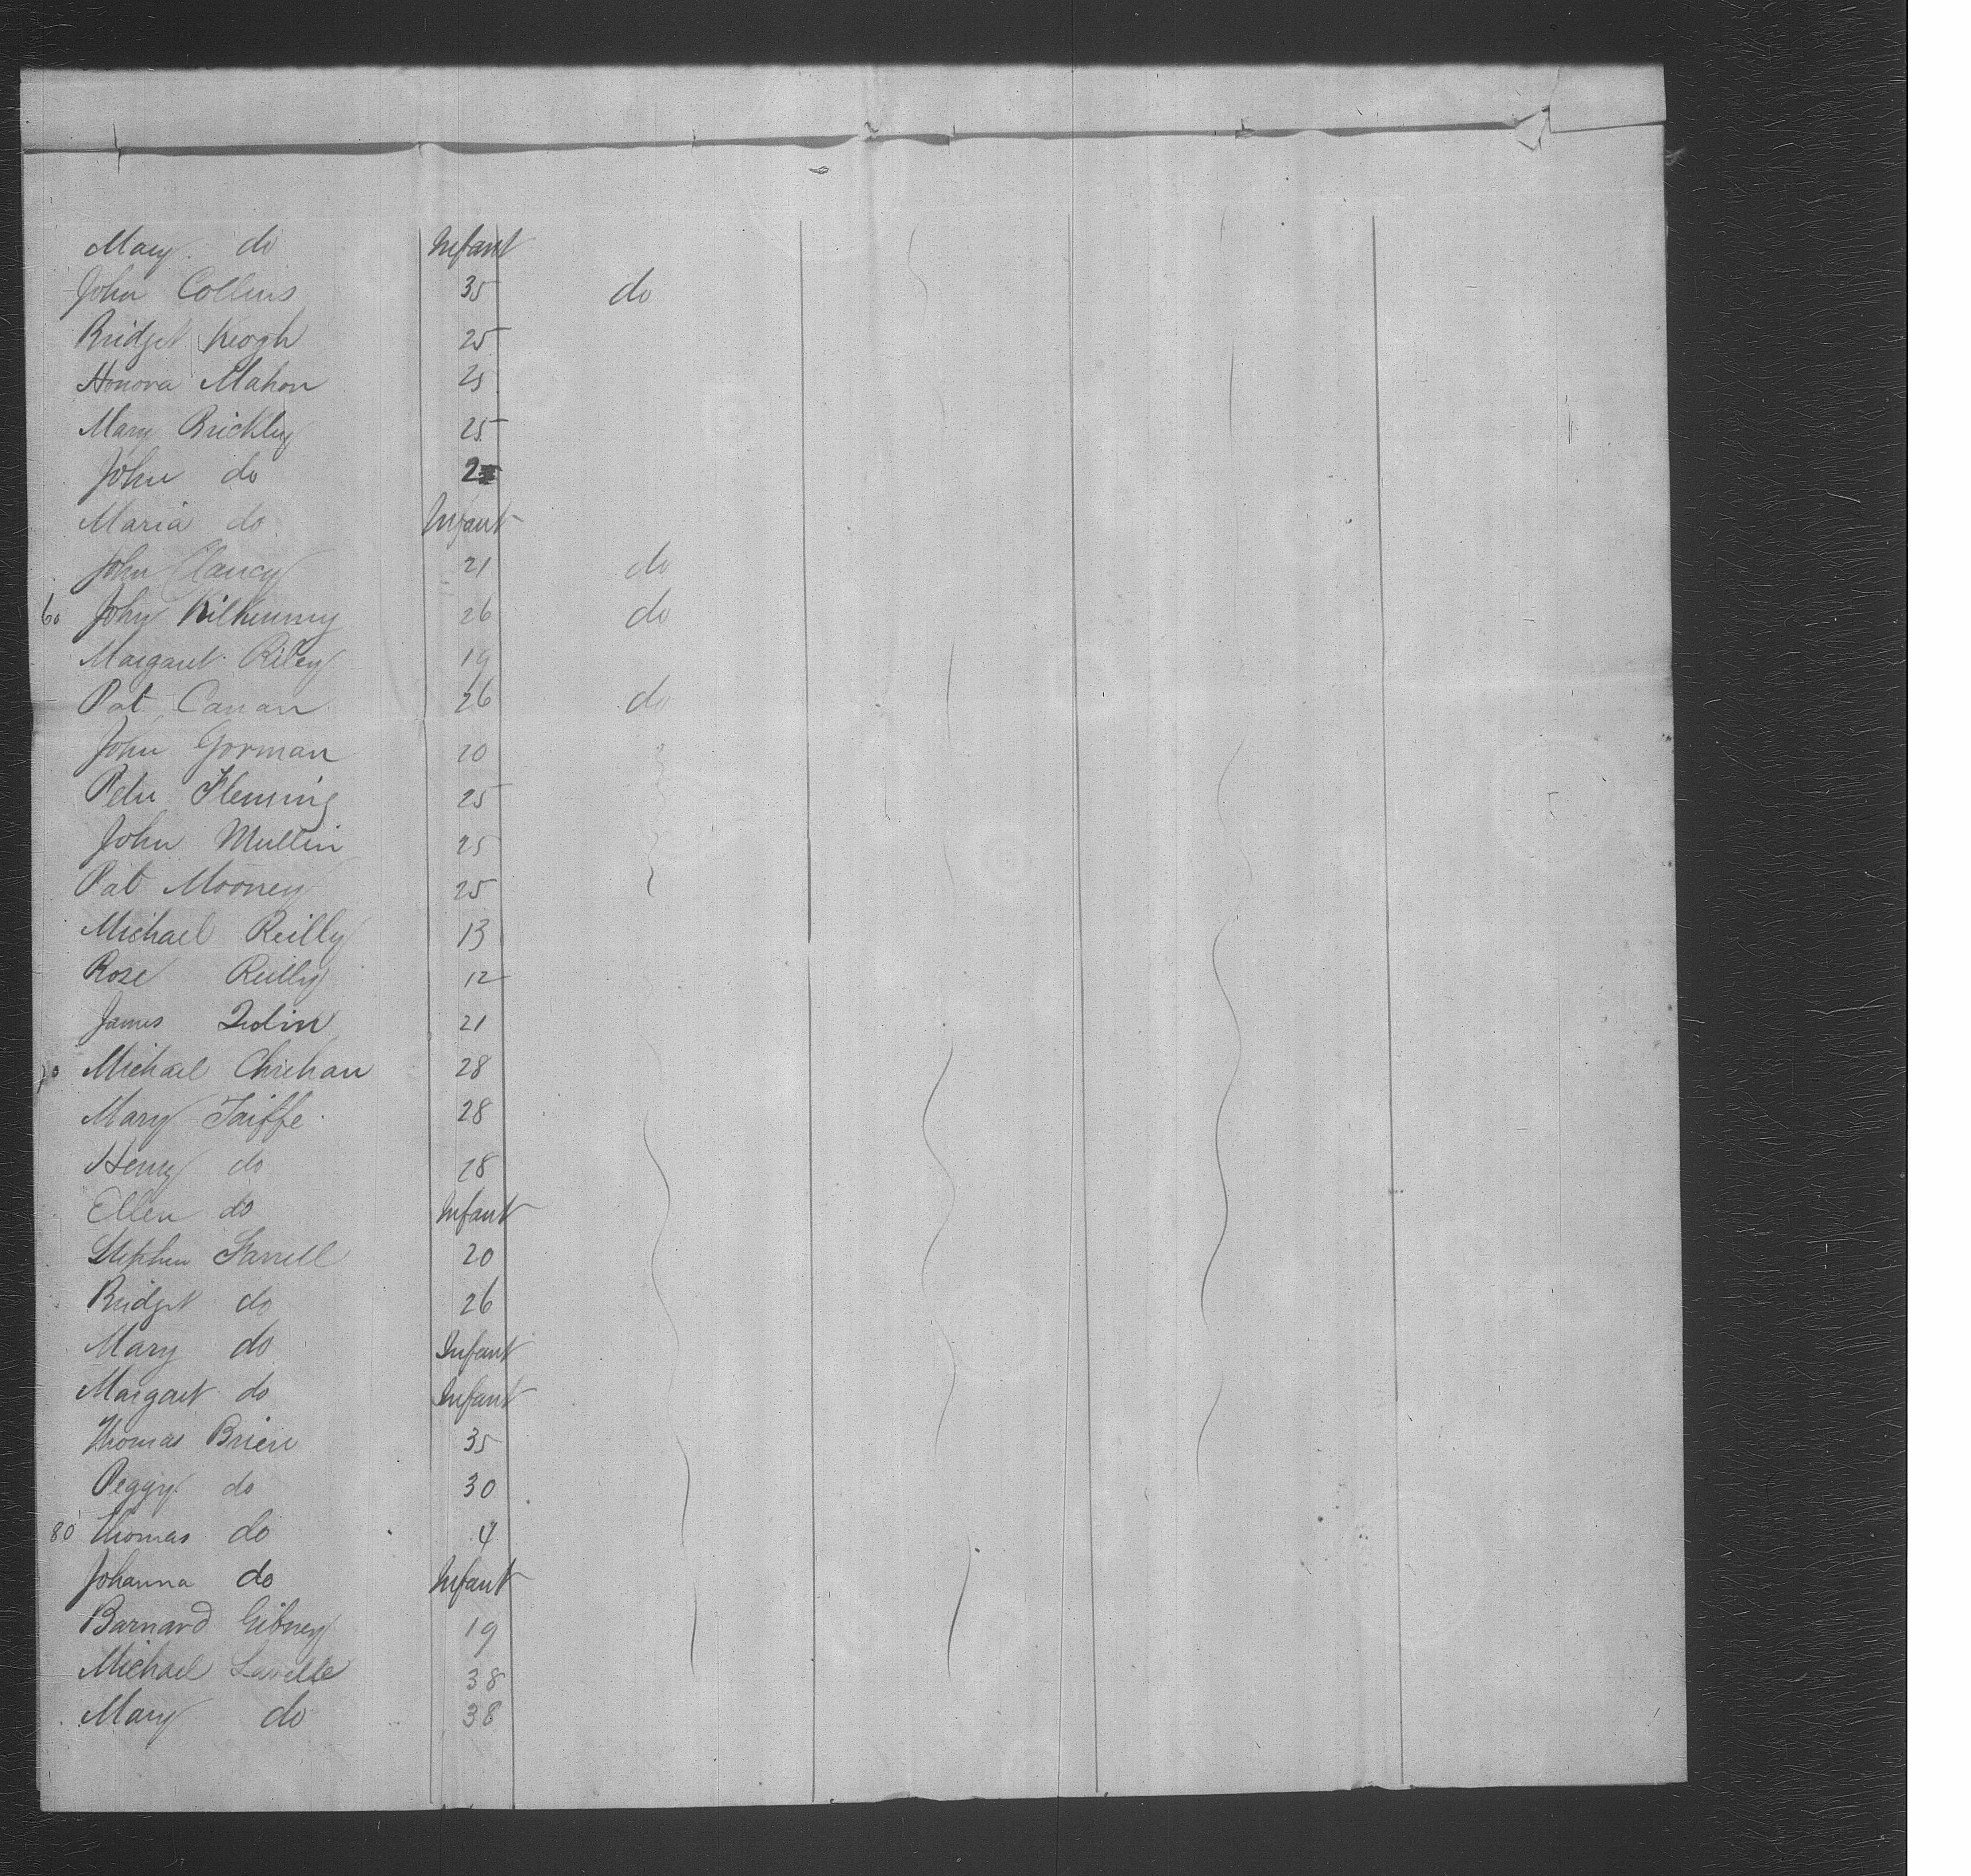 Mary do Infant
John Collins 35 do
Bridget Keogh 25
Honora Mahon 25
Mary Brickley 25
John do 2
Maria do Infant
John Clancy 21 do
60 John Kilkenny 26 do
Margaret Riley 19
Pat Canan 26 do
John Gorman 20
Peter Fleming 25
John Mullin 25
Pat Mooney 25
Michael Reilly 13
Rose Reilly 12
James 21
70 Michael 28
Mary Taiffe 28
Henry do 28
Ellen do Infant
Stephen Farrell 20
Bridget do 26
Mary do Infant
Margaret do Infant
Thomas Brien 35
Peggy do 30
80 Thomas do 4
Johanna do Infant
Barnard Gibney 19
Michael Lavelle 38
Mary do 38